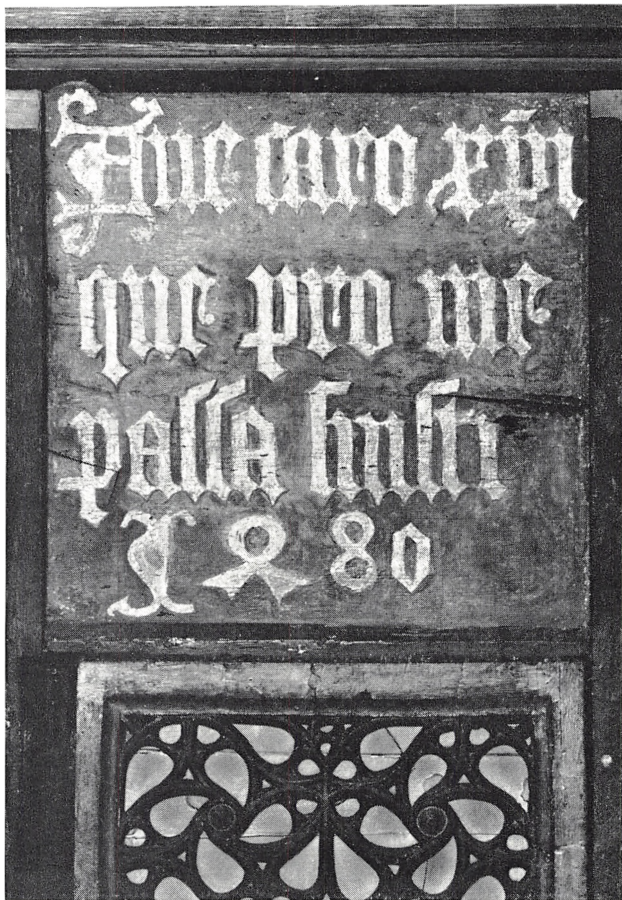 Aue caro xp̄i
que pro me
paſſa fuiſti
1480